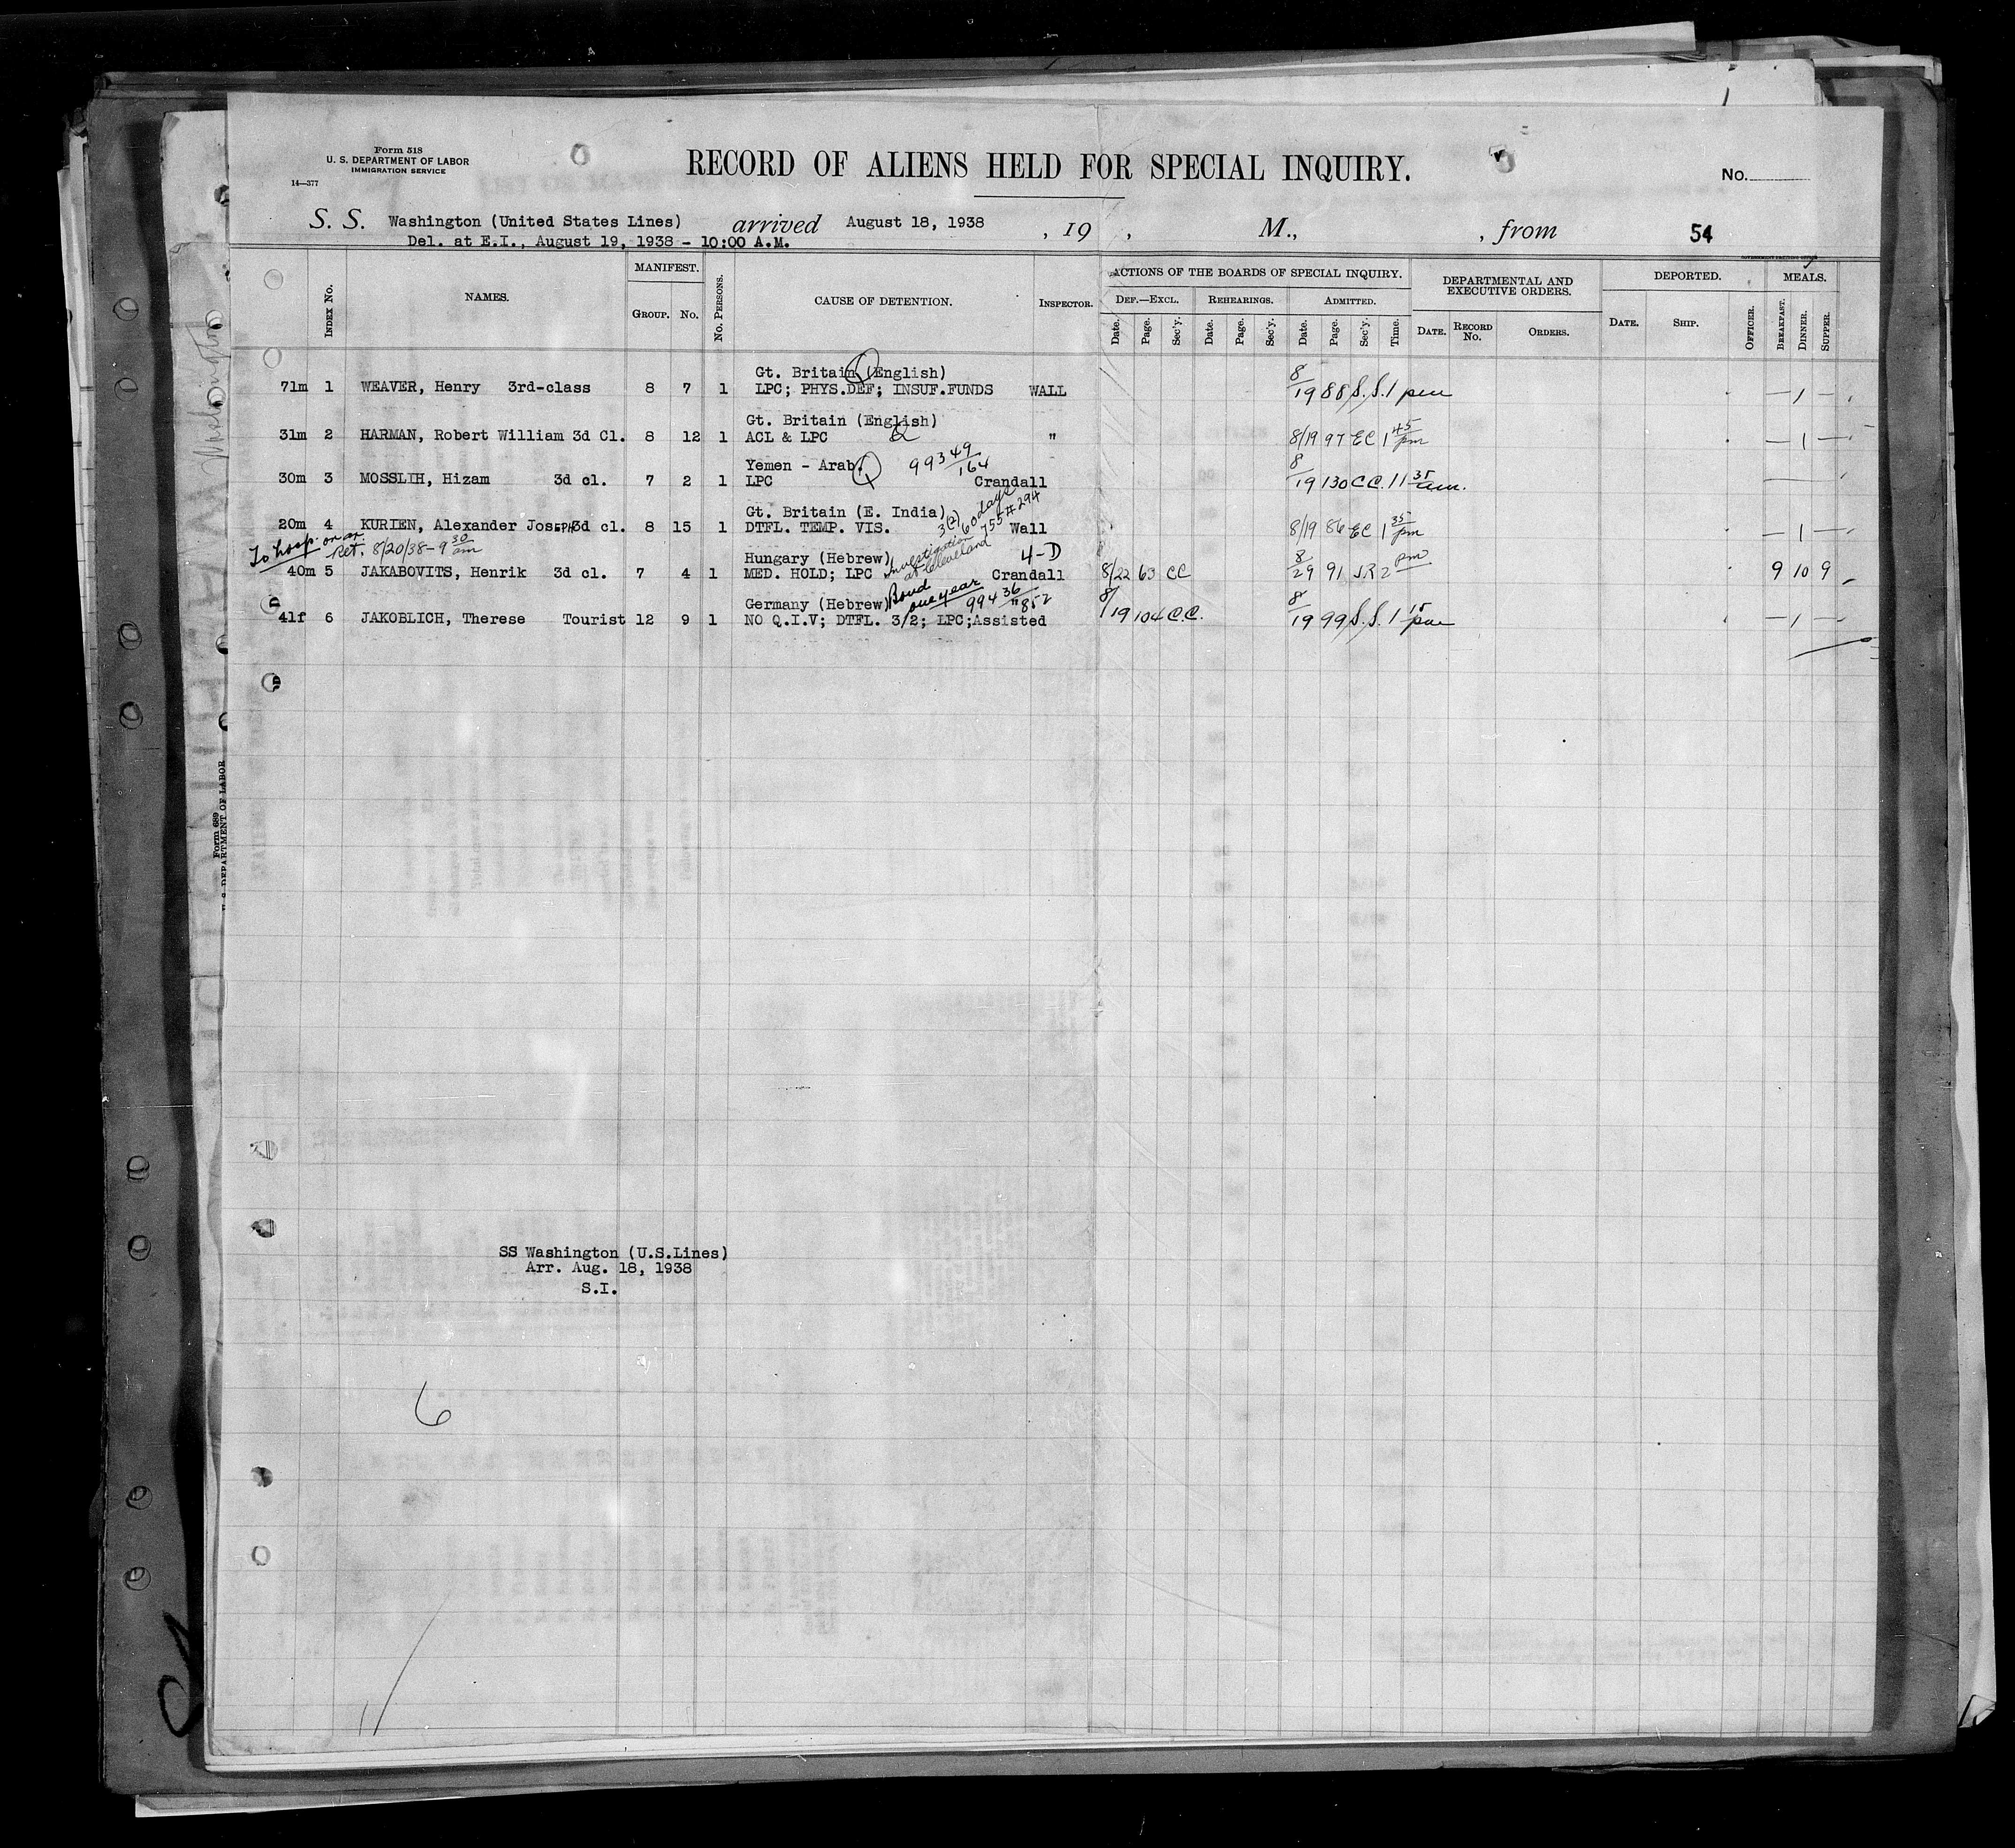 Form 518
U. S. DEPARTMENT OF LABOR
IMMIGRATION SERVICE
14—377
RECORD OF ALIENS HELD FOR SPECIAL INQUIRY.
No.
S. S. Washington (United States Lines) arrived August 18, 1938 , 19 , M., , from 54
Del. at E.I., August 19, 1938 - 10:00 A.M.
INDEX No. NAMES. MANIFEST. GROUP. No. No. PERSONS. CAUSE OF DETENTION. INSPECTOR. ACTIONS OF THE BOARDS OF SPECIAL INQUIRY. DEPARTMENTAL AND EXECUTIVE ORDERS. DEPORTED. MEALS.
DEF.—EXCL. REHEARINGS. ADMITTED.
Date. Page. Sec'y. Date. Page. Sec'y. Date. Page. Sec'y. Time. DATE. RECORD No. ORDERS. DATE. SHIP. OFFICER. BREAKFAST. DINNER. SUPPER.
Gt. Britain (English)
71m 1 WEAVER, Henry 3rd-class 8 7 1 LPC; PHYS.DEF; INSUF.FUNDS WALL 8/19 88 S.S. 1 pm — 1 —
Gt. Britain (English)
31m 2 HARMAN, Robert William 3d Cl. 8 12 1 ACL & LPC " 8/19 97 EC 1 45 pm — 1 —
Yemen - Arab. 99349/164
30m 3 MOSSLIH, Hizam 3d cl. 7 2 1 LPC Crandall 8/19 130 C.C. 11 35 am.
Gt. Britain (E. India) 3(2) 60 days 755#294
20m 4 KURIEN, Alexander Joseph 3d cl. 8 15 1 DTFL. TEMP. VIS. Wall 8/19 86 EC 1 35 pm — 1 —
To hosp. on ar.
Ret. 8/20/38 - 9 30 am
Hungary (Hebrew) Investigation at Cleveland 4-D
40m 5 JAKABOVITS, Henrik 3d cl. 7 4 1 MED. HOLD; LPC Crandall 8/22 63 CC 8/29 91 J.R 2 pm 9 10 9
Bond one year
Germany (Hebrew) 99436/852
41f 6 JAKOBLICH, Therese Tourist 12 9 1 NO Q.I.V; DTFL. 3/2; LPC;Assisted 8/19 104 C.C. 8/19 99 S.S. 1 15 pm — 1 —
Washington
Form 689
U. S. DEPARTMENT OF LABOR
SS Washington (U.S.Lines)
Arr. Aug. 18, 1938
S.I.
6